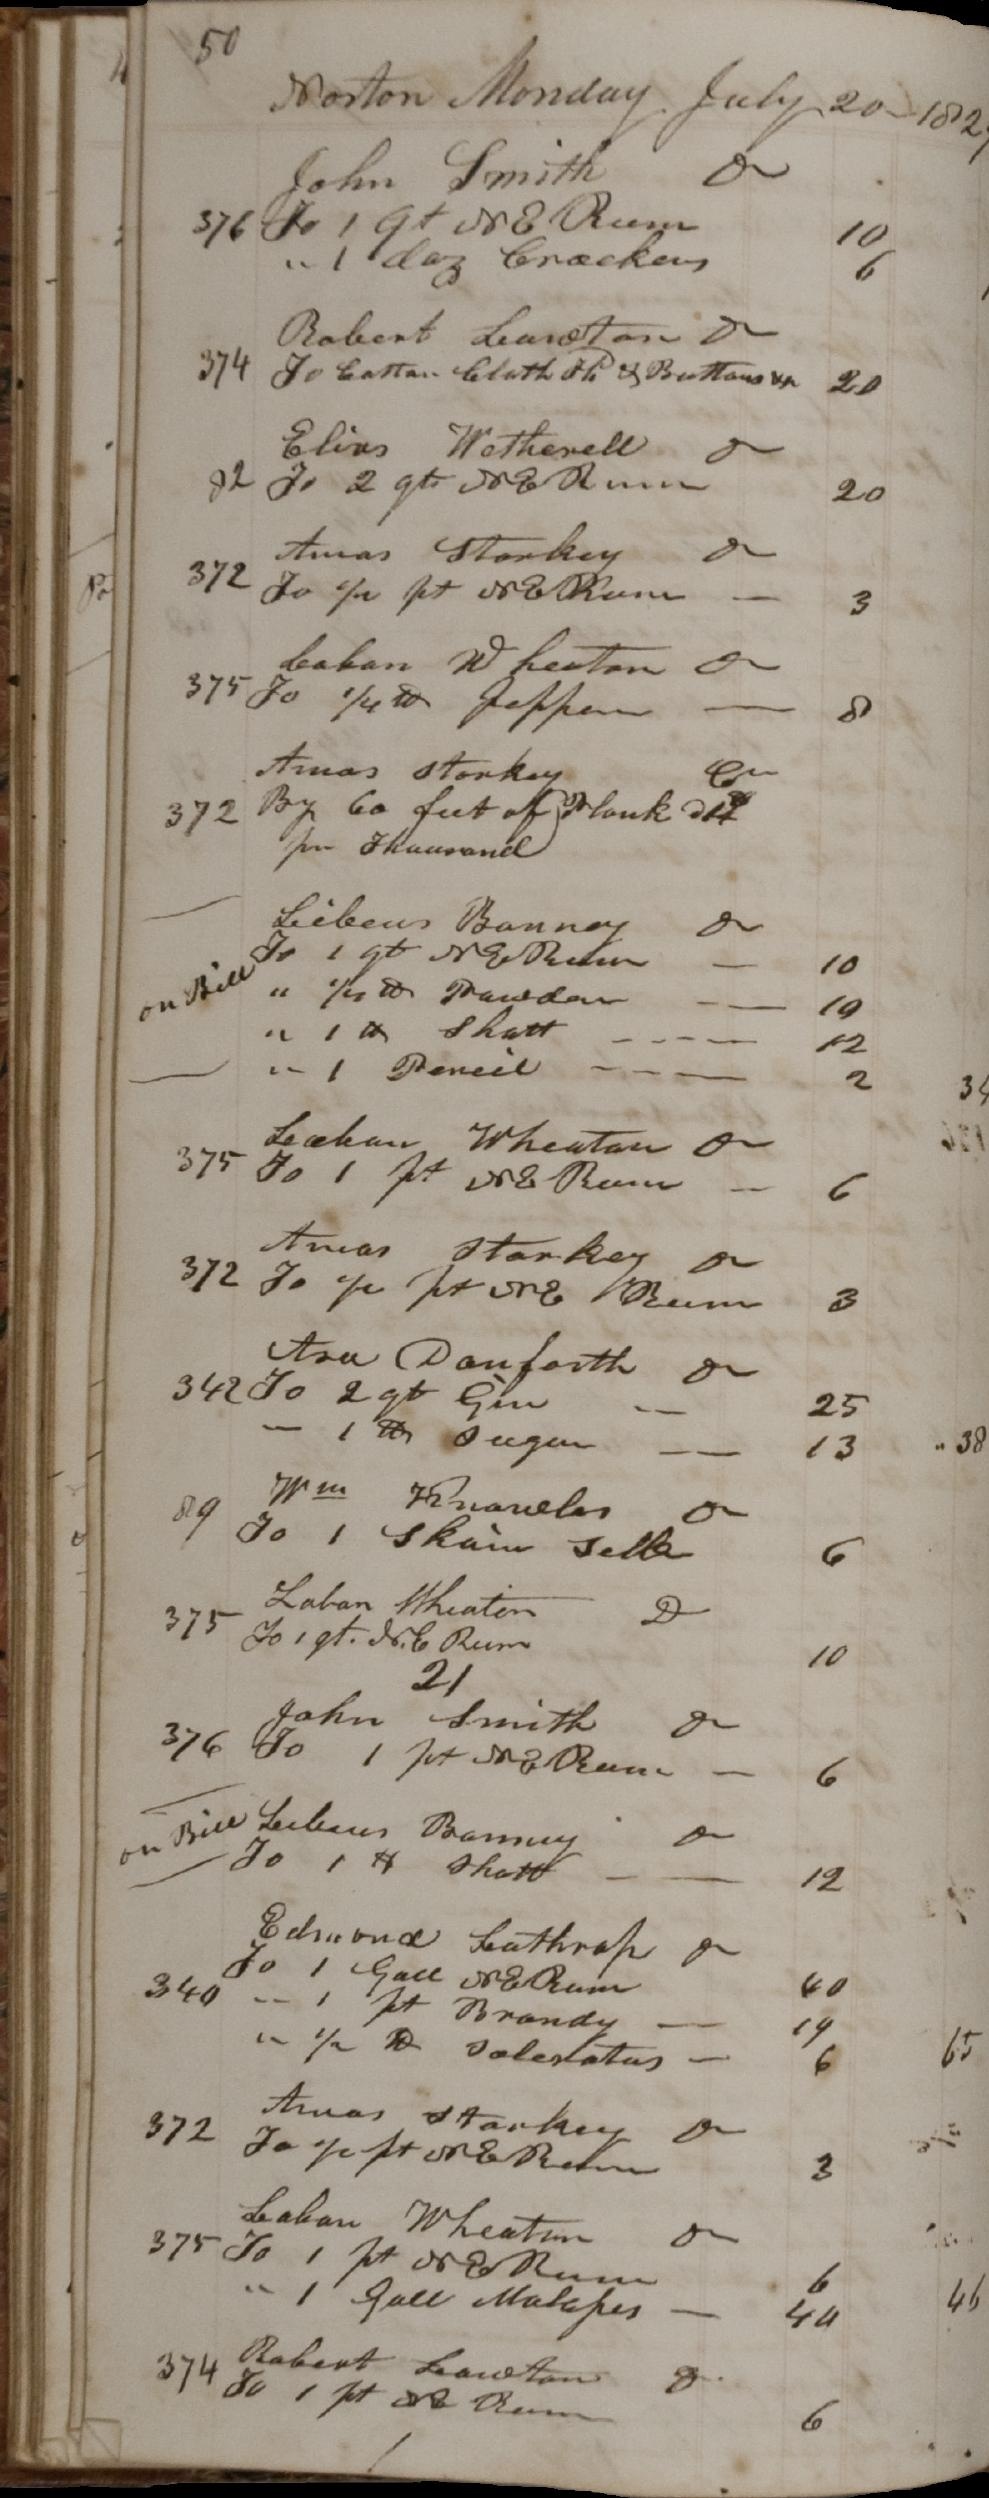 50
Norton Monday July 20 - 182
John Smith Dr
376 To 1 qt N E Rum 10
" 1 doz Crackers 6
Robert Lawton Dr
374 To Cotton Cloth & Buttons 20
Elias Wetherell Dr
82 To 2 qts N E Rum 20
Amos Starkey Dr
372 To 1/2 pt N E Rum — 3
Laban Wheaton Dr
375 To 1/4 lb Pepper — 8
Amos Starkey Cr
372 By 60 feet of Plank
per Thousand
Lebeus Bonney Dr
To 1 qt N E Rum — 10
on Bill
" 1/2 lb Powder — 10
" 1 lb Shott - - - - 12
" 1 Pencil - - - 2 34
Laban Wheaton Dr
375 To 1 pt N E Rum — 6
Amos Starkey Dr
372 To 1/2 pt N E Rum 3
Asa Danforth Dr
342 To 2 qt Gin — 25
" 1 lb Sugar — 13 " 38
Wm Knowles Dr
89 To 1 Skain Silk 6
Laban Wheaton D
375 To 1 qt. N. E Rum 10
21
John Smith Dr
376 To 1 pt N E Rum — 6
on Bill Lebeus Bonney Dr
To 1 lb Shott — 12
Edmond Lathrop Dr
To 1 Gall N E Rum 40
340 " 1 pt Brandy — 19
" 1/2 lb Saleratus — 6 65
Amos Starkey Dr
372 To 1/2 pt N E Rum 3
Laban Wheaton Dr
375 To 1 pt N E Rum 6
" 1 Gall Molasses — 40 46
374 Robert Lawton Dr
To 1 pt N E Rum 6